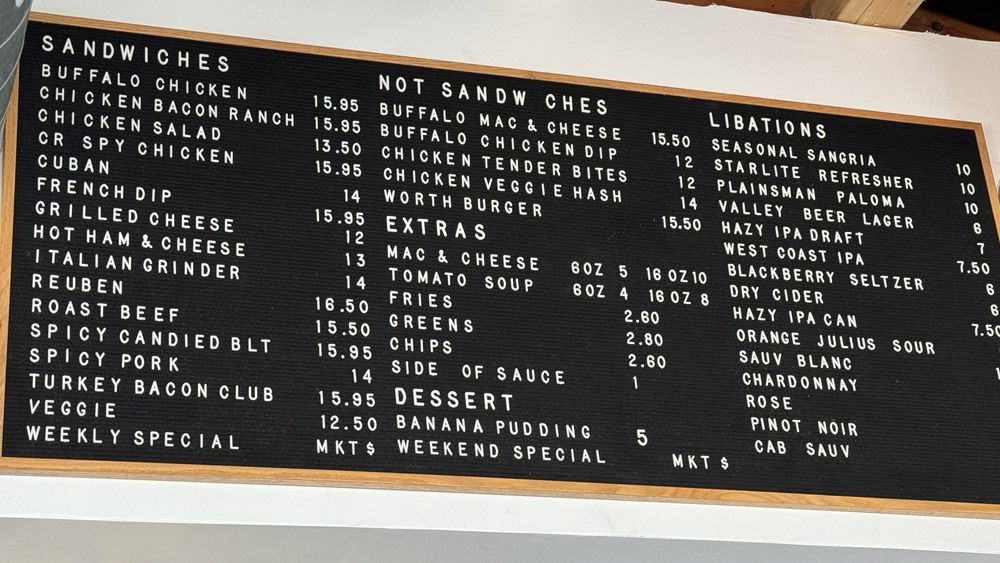 SANDWICHES
BUFFALO CHICKEN 15.95
CHICKEN BACON RANCH 15.95
CHICKEN SALAD 13.50
CR SPY CHICKEN 15.95
CUBAN 14
FRENCH DIP 15.95
GRILLED CHEESE 12
HOT HAM & CHEESE 13
ITALIAN GRINDER 14
REUBEN 16.50
ROAST BEEF 15.50
SPICY CANDIED BLT 15.95
SPICY PORK 14
TURKEY BACON CLUB 15.95
VEGGIE 12.50
WEEKLY SPECIAL MKT $
NOT SANDW CHES
BUFFALO MAC & CHEESE 15.50
BUFFALO CHICKEN DIP 12
CHICKEN TENDER BITES 12
CHICKEN VEGGIE HASH 14
WORTH BURGER 15.50
EXTRAS
MAC & CHEESE 6OZ 5 16 OZ 10
TOMATO SOUP 6OZ 4 16 OZ 8
FRIES 2.60
GREENS 2.80
CHIPS 2.60
SIDE OF SAUCE 1
DESSERT
BANANA PUDDING 5
WEEKEND SPECIAL MKT $
LIBATIONS
SEASONAL SANGRIA 10
STARLITE REFRESHER 10
PLAINSMAN PALOMA 10
VALLEY BEER LAGER 6
HAZY IPA DRAFT 7
WEST COAST IPA 7.50
BLACKBERRY SELTZER 6
DRY CIDER 6
HAZY IPA CAN 7.50
ORANGE JULIUS SOUR
SAUV BLANC
CHARDONNAY
ROSE
PINOT NOIR
CAB SAUV